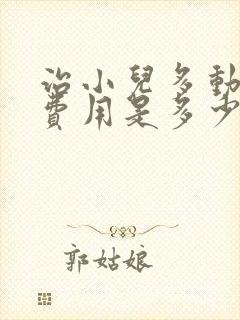 治小兒多動
費用是多少
郭姑娘